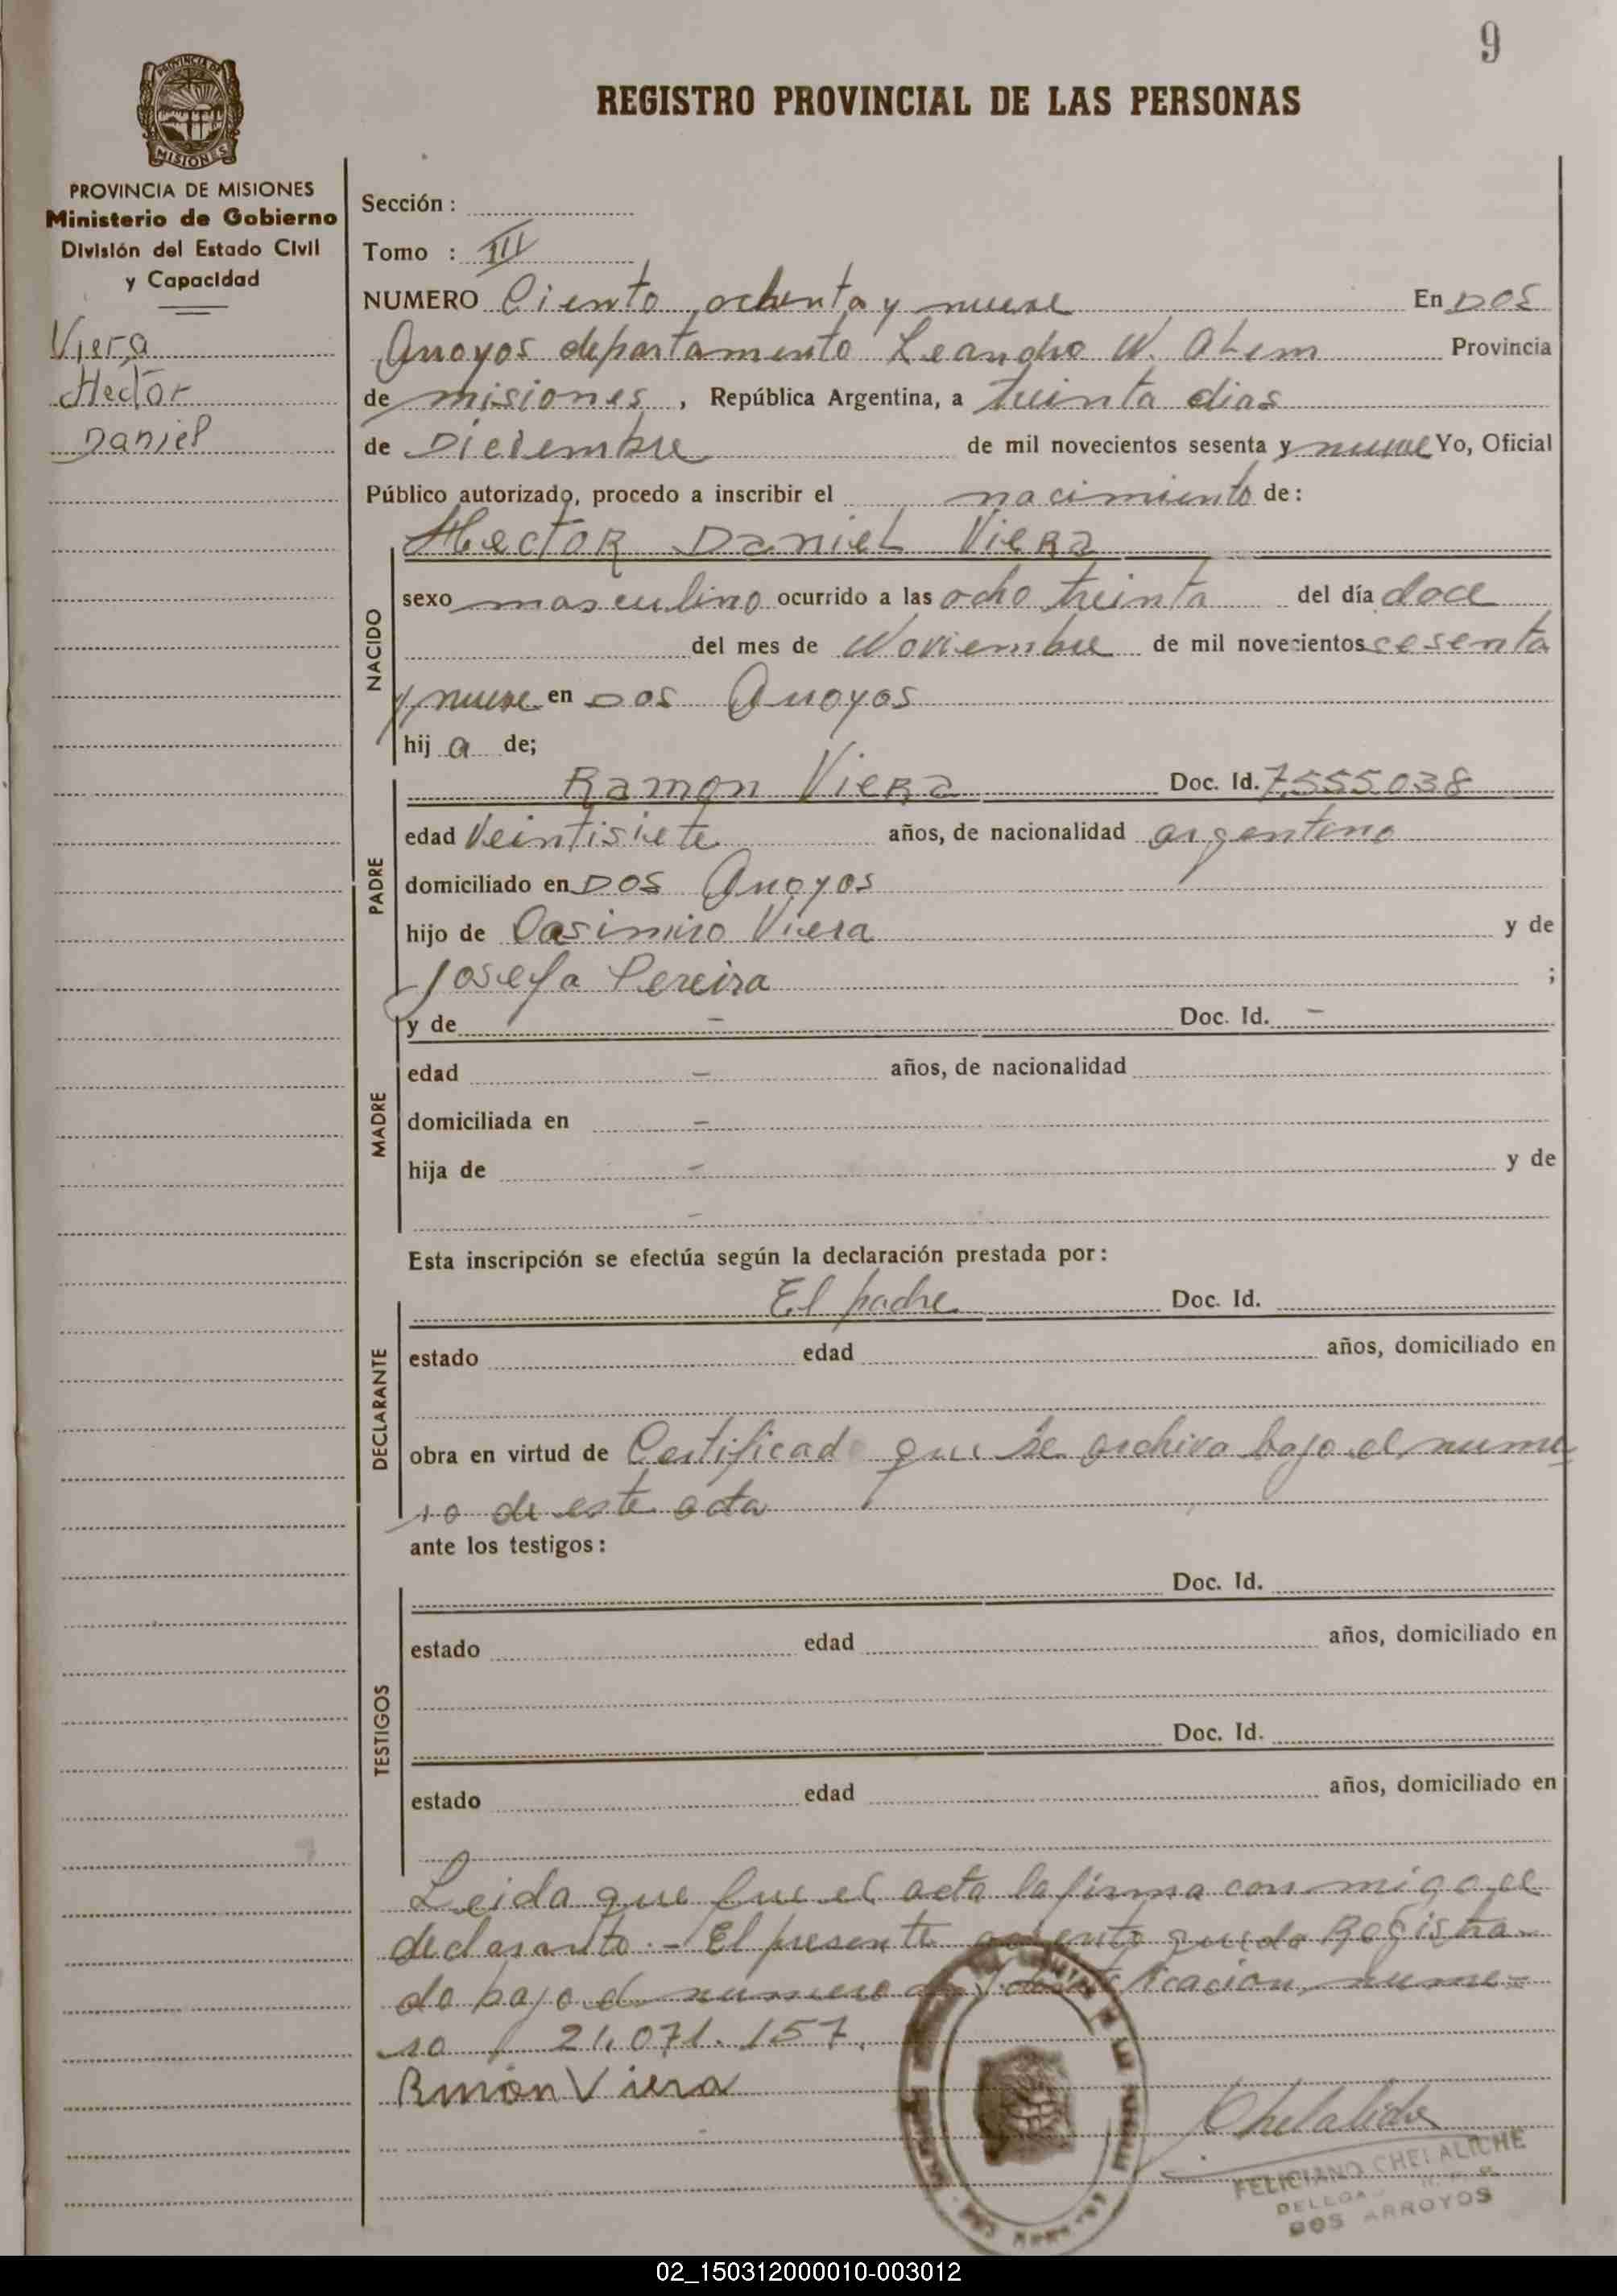 9
REGISTRO PROVINCIAL DE LAS PERSONAS
PROVINCIA DE
MISIONES
PROVINCIA DE MISIONES
Ministerio de Gobierno
División del Estado Civil
y Capacidad
Viera
Hector
Daniel
Sección :
Tomo : III
NUMERO Ciento ochenta y nueve En DOS
Arroyos departamento Leandro N. Alem Provincia
de misiones , República Argentina, a treinta dias
de Diciembre de mil novecientos sesenta y nueve Yo, Oficial
Público autorizado, procedo a inscribir el nacimiento de :
Hector Daniel Viera
NACIDO
sexo masculino ocurrido a las ocho treinta del día doce
del mes de Noviembre de mil novecientos cesenta
y nueve en Dos Arroyos
hij a de;
PADRE
Ramon Viera Doc. Id. 7.555.038
edad Veintisiete años, de nacionalidad argentino
domiciliado en DOS Arroyos
hijo de Casimiro Viera y de
Josefa Pereira ;
MADRE
y de - Doc. Id. -
edad - años, de nacionalidad
domiciliada en -
hija de - y de
-
Esta inscripción se efectúa según la declaración prestada por :
DECLARANTE
El padre Doc. Id.
estado edad años, domiciliado en
obra en virtud de Certificado que se archiva bajo el nume
ro de este acta
ante los testigos :
TESTIGOS
Doc. Id.
estado edad años, domiciliado en
Doc. Id.
estado edad años, domiciliado en
Leida que fue el acta la firma con migo el
declarante.- El presente asiento queda Registra-
do bajo el numero de Identificacion nume-
ro 21.071.157.
Ramón Viera
Chelaliche
FELICIANO CHELALICHE
DOS ARROYOS
02_150312000010-003012